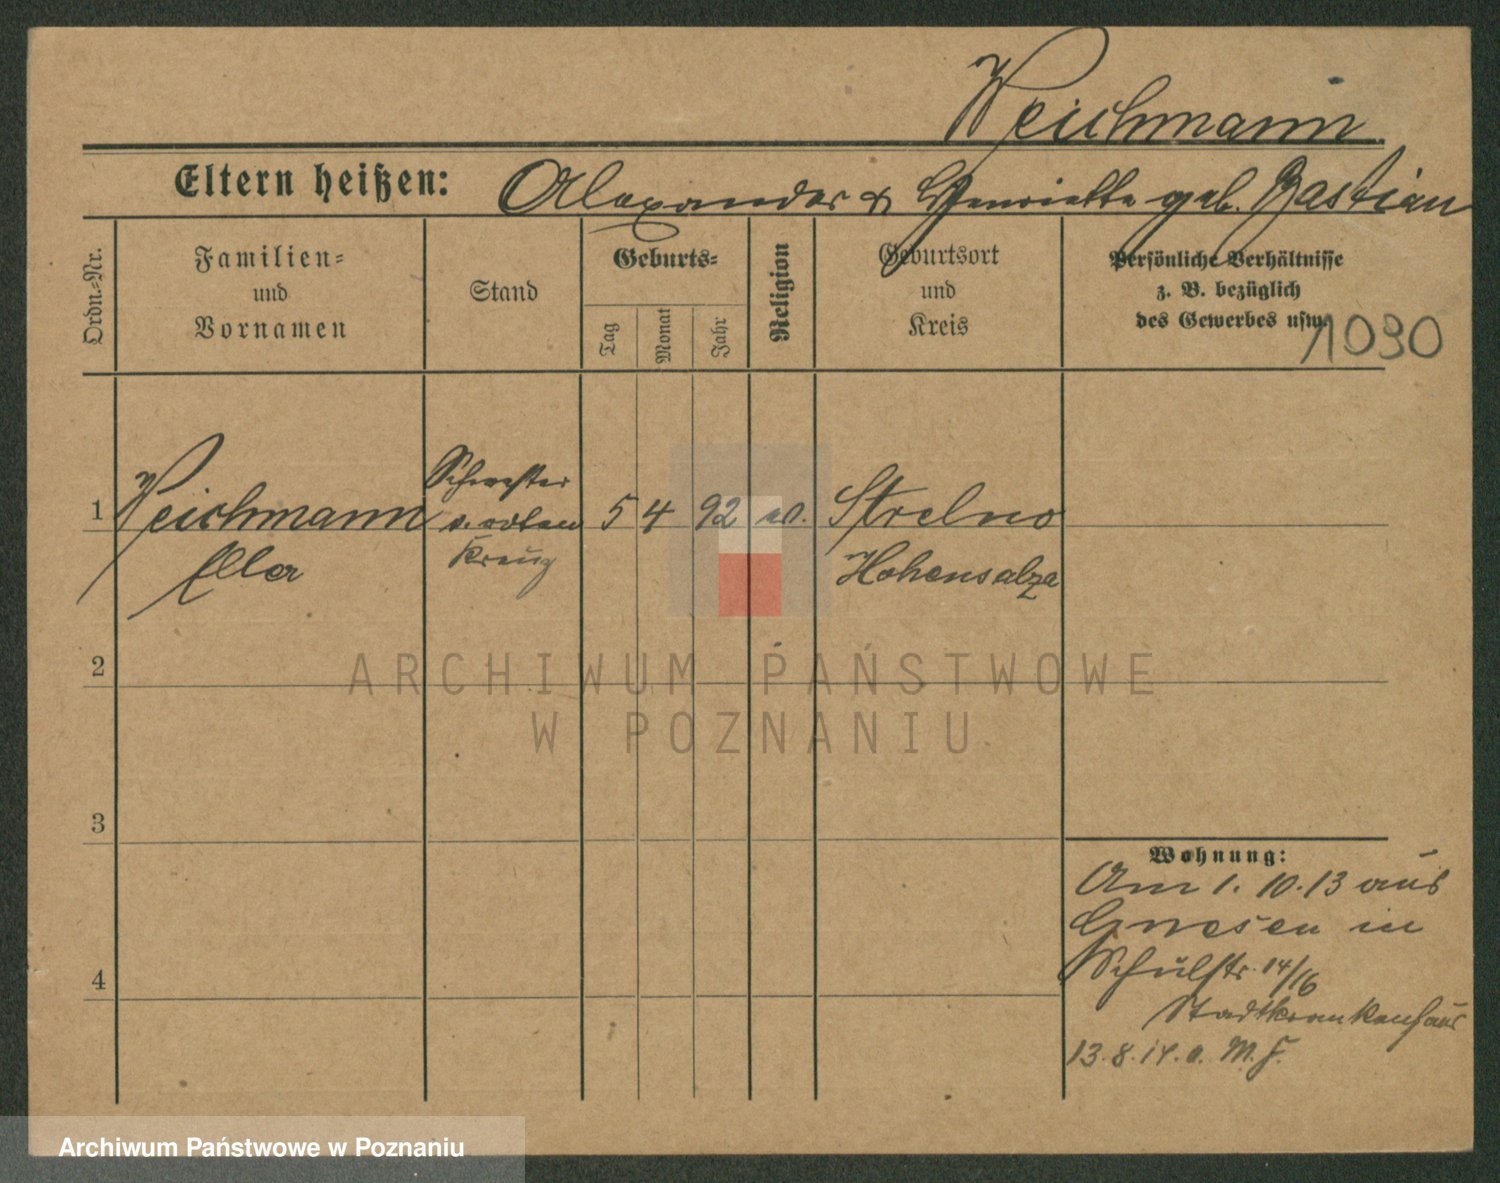 Weichmann
Eltern heißen: Alexander & Henriette geb. Bastian
Ordn.-Nr.
Familien-
und
Vornamen
Stand
Geburts-
Tag
Monat
Jahr
Religion
Geburtsort
und
Kreis
Persönliche Verhältnisse
z. B. bezüglich
des Gewerbes usw.
1030
1 Weichmann Schwester 5 4 92 ev. Strelno
v. roten
Ella Kreuz Hohensalza
2
ARCHIWUM PAŃSTWOWE
W POZNANIU
3
Wohnung:
Am 1. 10. 13 aus
Gnesen in
Schulstr. 14/16
Stadtkrankenhaus
4
13. 8. 14. M. F.
Archiwum Państwowe w Poznaniu